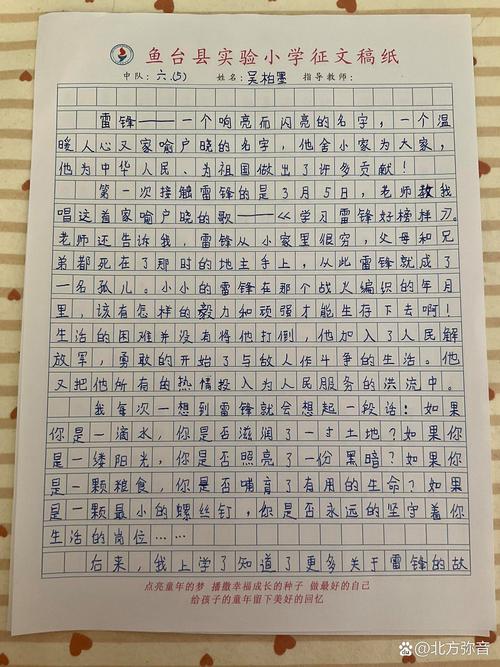 鱼台县实验小学征文稿纸
中队：六.(5) 姓名：吴柏墨 指导教师：
雷锋——一个响亮而闪亮的名字，一个温
暖人心又家喻户晓的名字，他舍小家为大家，
他为中华人民、为祖国做出了许多贡献！
第一次接触雷锋的是3月5日，老师教我
唱这首家喻户晓的歌——《学习雷锋好榜样》。
老师还告诉我，雷锋从小家里很穷，父母和兄
弟都死在了那时的地主手上，从此雷锋就成了
一名孤儿。小小的雷锋在那个战火编织的年月
里，该有怎样的毅力和顽强才能生存下去啊！
生活的困难并没有将他打倒，他加入了人民解
放军，勇敢的开始了与敌人作斗争的生活。他
又把他所有的热情投入为人民服务的洪流中。
我每次一想到雷锋就会想起一段话：如果
你是一滴水，你是否滋润了一寸土地？如果你
是一缕阳光，你是否照亮了一份黑暗？如果你
是一颗粮食，你是否哺育了有用的生命？如果
是一颗最小的螺丝钉，你是否永远的坚守着你
生活的岗位……
后来，我上学了知道了更多关于雷锋的故
点亮童年的梦 播撒幸福成长的种子 做最好的自己
给孩子的童年留下美好的回忆
百家号/北方弥音